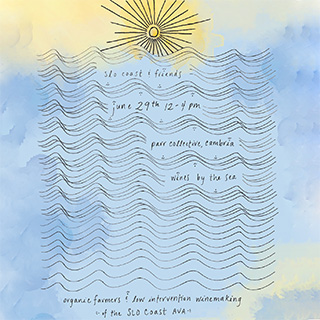 slo coast & friends
june 29th 12-4 pm
parr collective, cambria
wines by the sea
organic farmers & low intervention winemaking
of the SLO Coast AVA